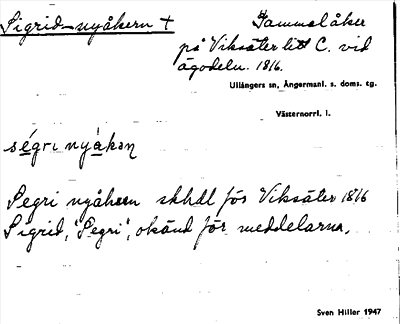 Sigrid-nyåkern +
Gammal åker
på Viksäter litt C. vid
ägodeln. 1816.
Ullångers sn, Ångermanl. s. doms. tg.
Västernorrl. l.
ségri nyåkən
Segri nyåkern skhdl för Viksäter 1816
Sigrid, "Segri", okänd för meddelarna.
Sven Hiller 1947